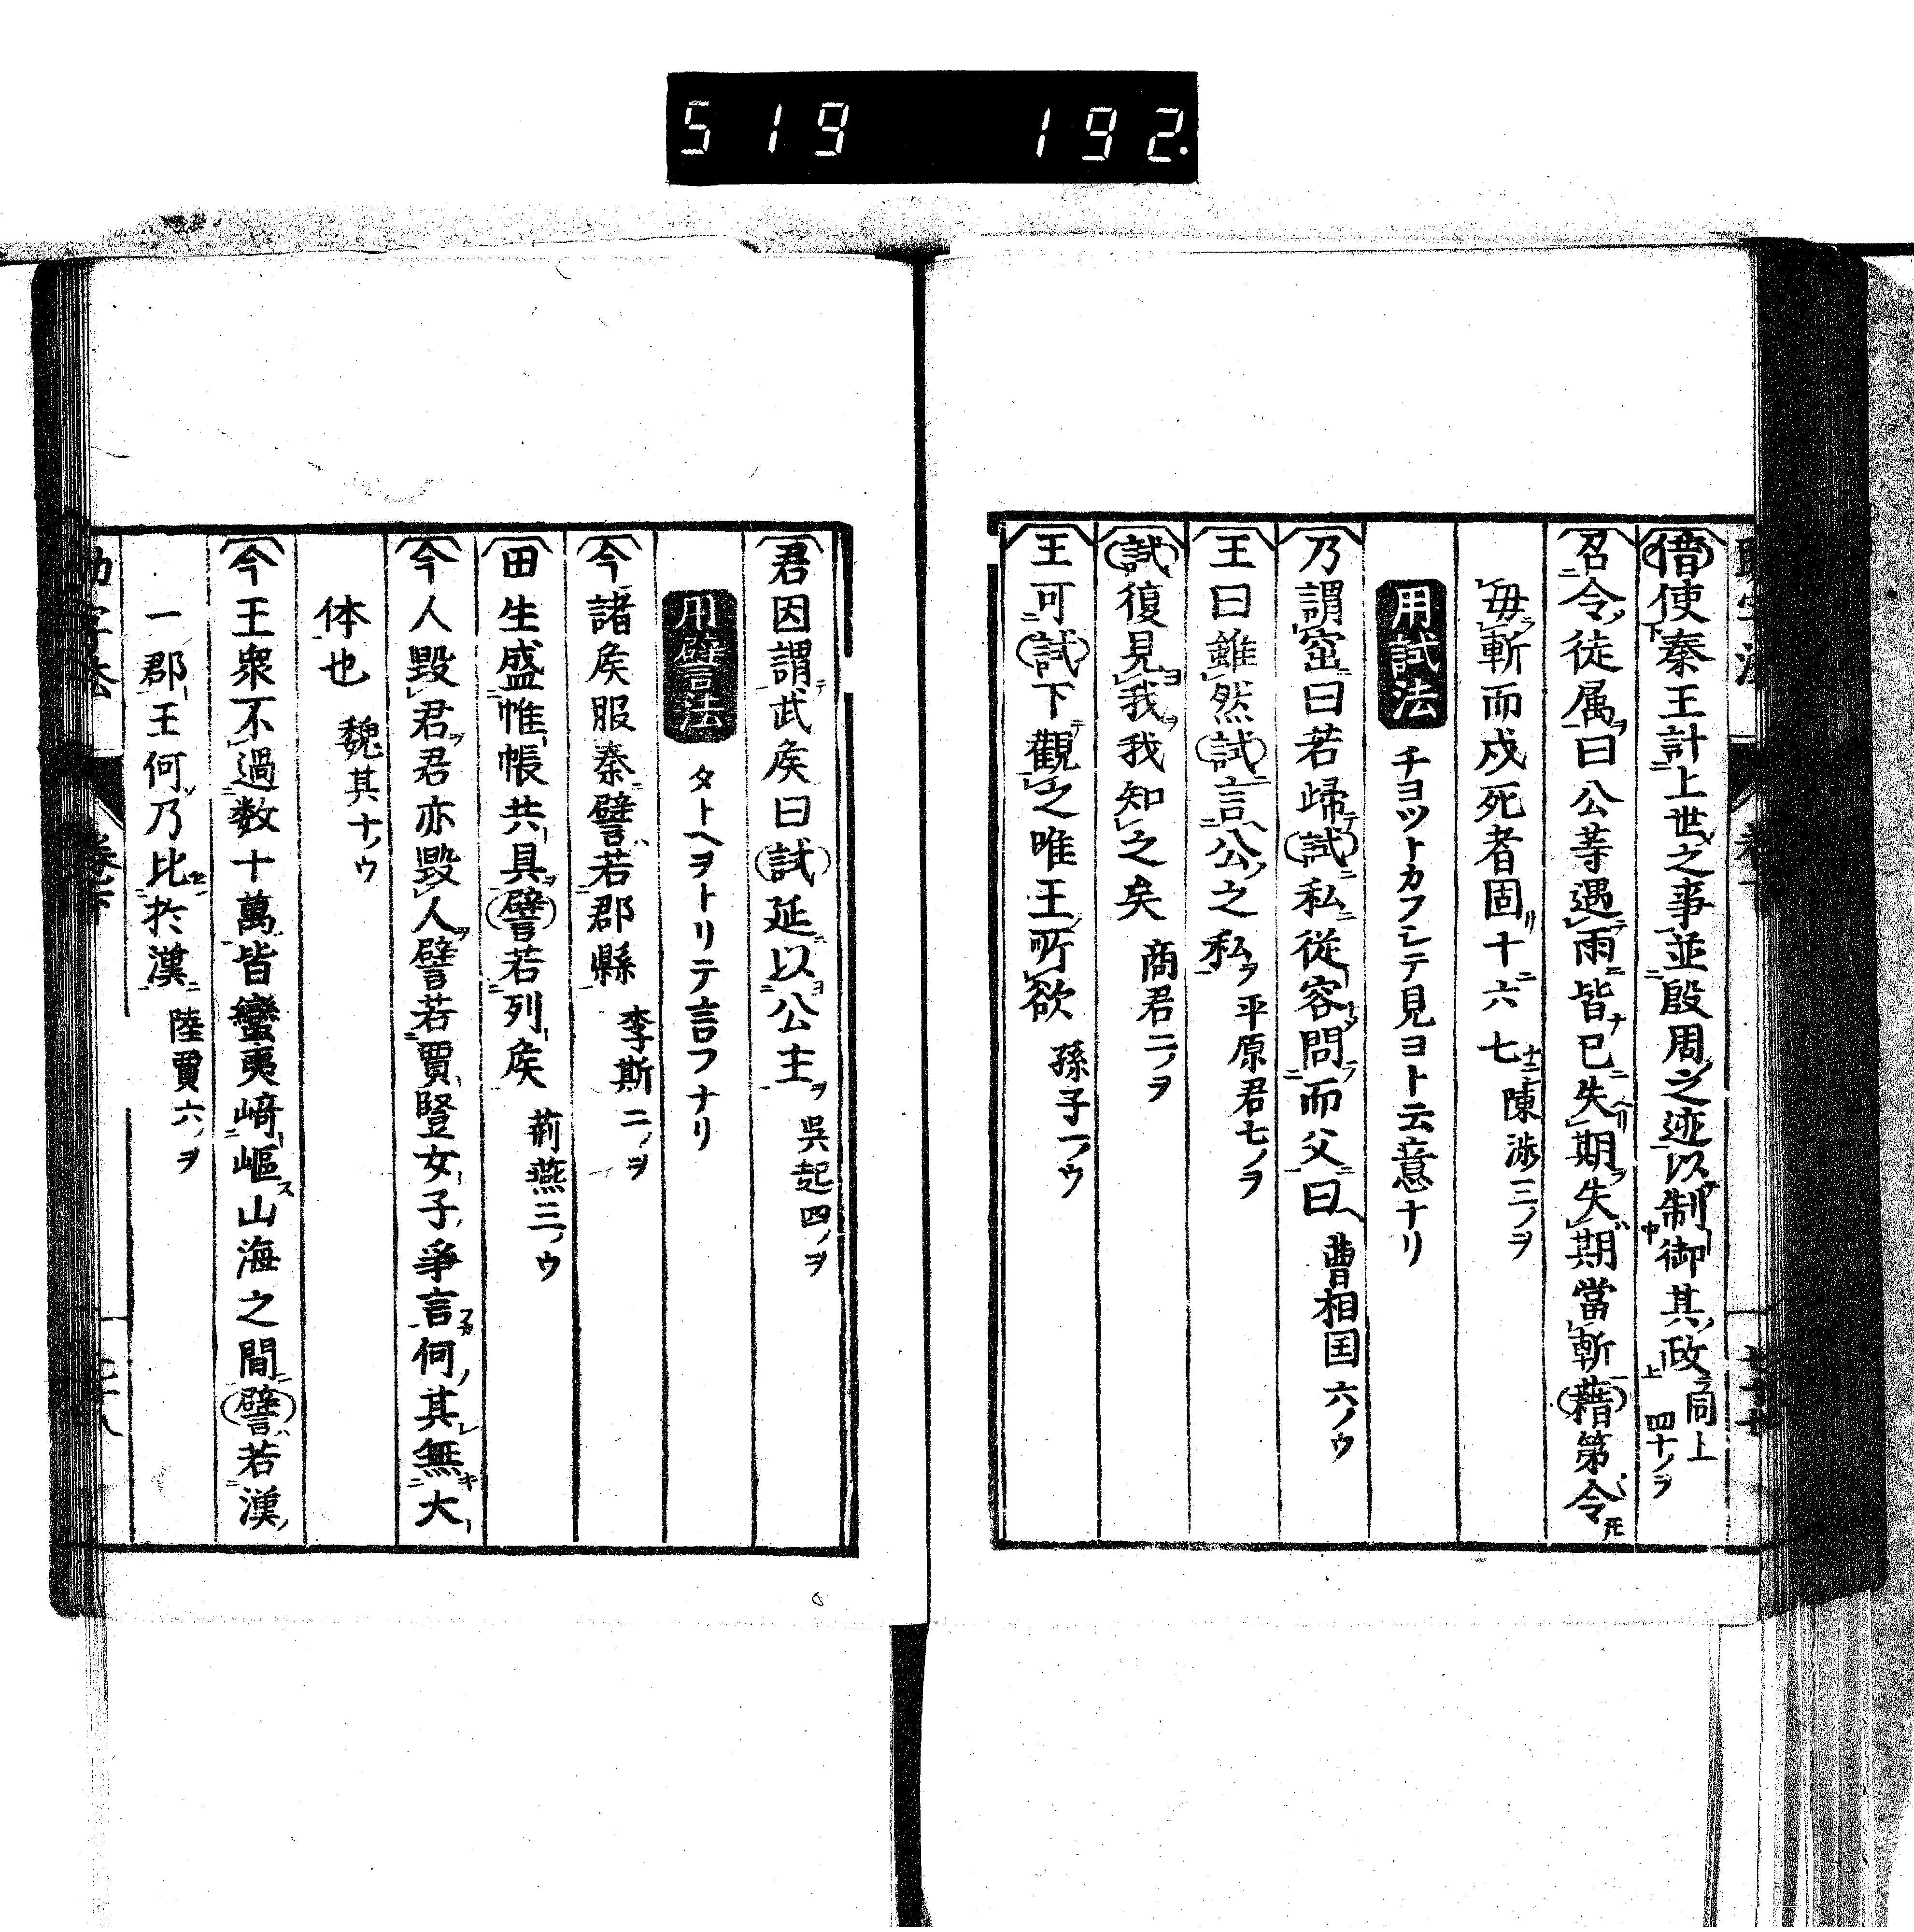 519 192.
借使秦王計上世之事並殷周之迹以制御其政 同上 四十ノヲ
召令徒属曰公等遇雨皆已失期失期當斬藉第令
毋斬而戍死者固十六七 陳涉三ノヲ
用試法 チヨツトカフシテ見ヨト云意ナリ
乃謂窋曰若歸試私從容問而父曰 曹相国六ノウ
王曰雖然試言公之私 平原君七ノヲ
試復見我我知之矣 商君二ノヲ
王可試下觀之唯王所欲 孫子一ノウ
君因謂武矦曰試延以公主 吳起四ノヲ
用譬法 タトヘヲトリテ言フナリ
今諸矦服秦譬若郡縣 李斯二ノヲ
田生盛帷帳共具譬若列矦 荊燕三ノウ
今人毀君君亦毀人譬若賈豎女子爭言何其無大
体也 魏其十ノウ
今王衆不過数十萬皆蠻夷﨑嶇山海之間譬若漢
一郡王何乃比於漢 陸賈六ノヲ